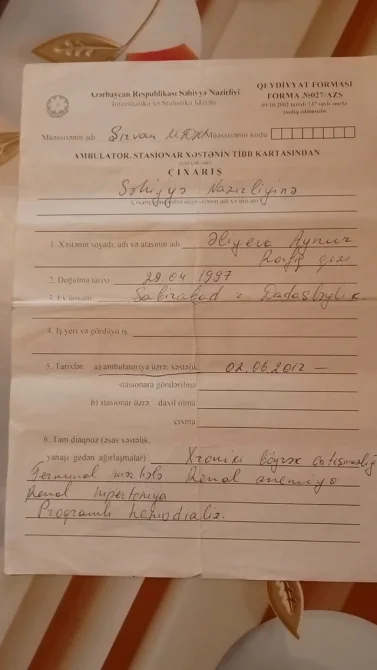 Azərbaycan Respublikası Səhiyyə Nazirliyi
İnformatika və Statistika İdarəsi
QEYDİYYAT FORMASI
FORMA №027/AZS
Müəssisənin adı Şirvan Müəssisənin kodu
AMBULATOR, STASİONAR XƏSTƏNİN TİBB KARTASINDAN
ÇIXARIŞ
Səhiyyə Nazirliyinə
1. Xəstənin soyadı, adı və atasının adı Əliyeva Aynur
qızı
2. Doğulma tarixi 29.04 1997
3. Ev ünvanı Sabirabad
4. İş yeri və gördüyü iş
5. Tarixlər: a) ambulatoriya üzrə: xəstəlik 02.06.2012 –
stasionara göndərilmə
b) stasionar üzrə: daxil olma
çıxma
6. Tam diaqnoz (əsas xəstəlik,
yanaşı gedən ağırlaşmalar) Xroniki böyrək çatışmazlığı
Terminal mərhələ Renal anemiya
Renal hipertoniya
Proqramlı hemodializ.